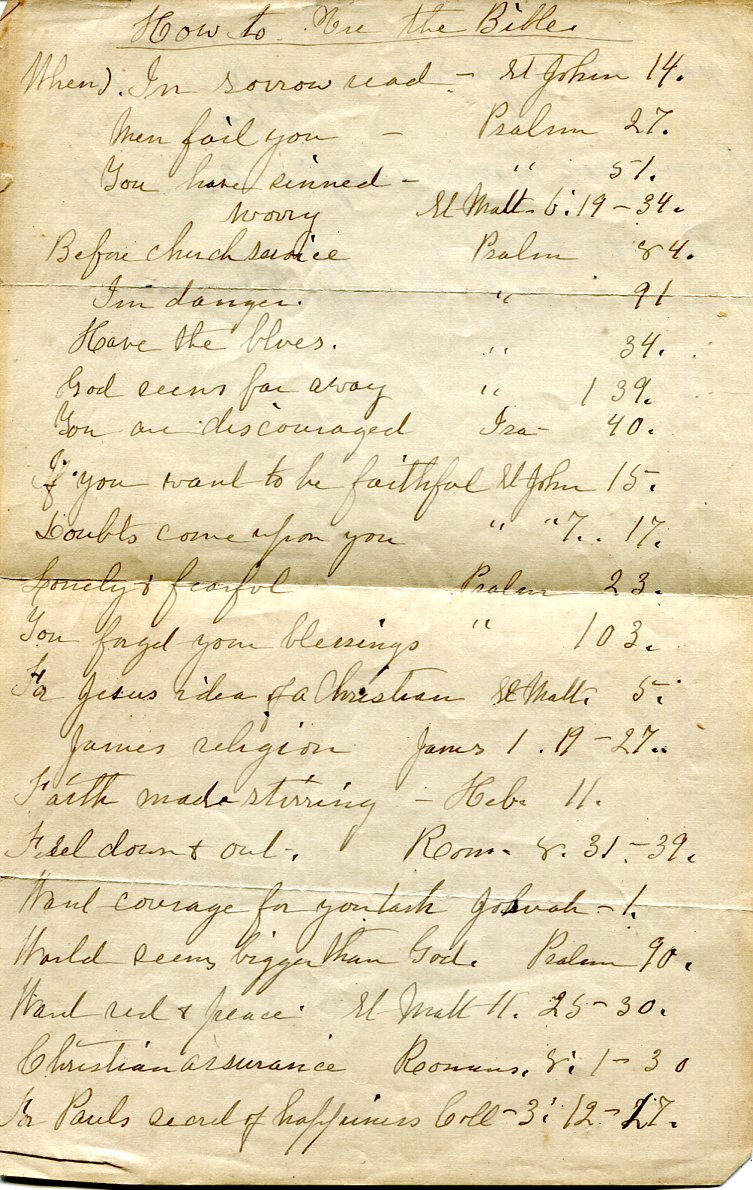 How to Use the Bible.
When). In sorrow read - St John 14.
Men fail you - Psalm 27.
You have sinned - " 51.
worry St Matt. 6:19-34.
Before church service Psalm 84.
In danger. " 91
Have the blues. " 34.
God seems far away " 139.
You are discouraged Isa- 40.
If you want to be faithful St John 15.
Doubts come upon you " "7.. 17.
Lonely & fearful Psalm 23.
You forget your blessings " 103.
For Jesus idea of a Christian St Matt. 5.
James religion James 1. 19-27.
Faith made stirring - Heb. 11.
Feel down & out. Rom. 8. 31-39.
Want courage for your task Joshuah - 1.
World seems bigger than God. Psalm 90.
Want rest & peace St Matt 11. 25-30.
Christian assurance Romans. 8: 1-30
For Pauls secret of happiness Coll-3: 12-17.